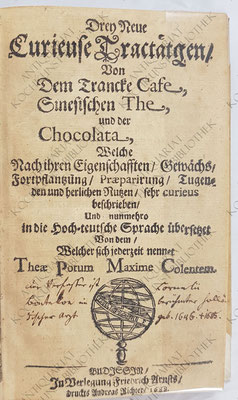 Drey Neue
Curieuse Tractätgen/
Von
Dem Trancke Cafe,
Sinesischen The,
und der
Chocolata,
Welche
Nach ihren Eigenschafften/ Gewächs/
Fortpflantzung/ Præparirung/ Tugen-
den und herlichen Nutzen/ sehr curieus
beschrieben/
Und nunmehro
in die Hoch-teutsche Sprache übersetzet
Von dem/
Welcher sich jederzeit nennet
Theæ Potum Maxime Colentem.
BUDISSIN/
In Verlegung Friedrich Arnsts/
druckts Andreas Richter/